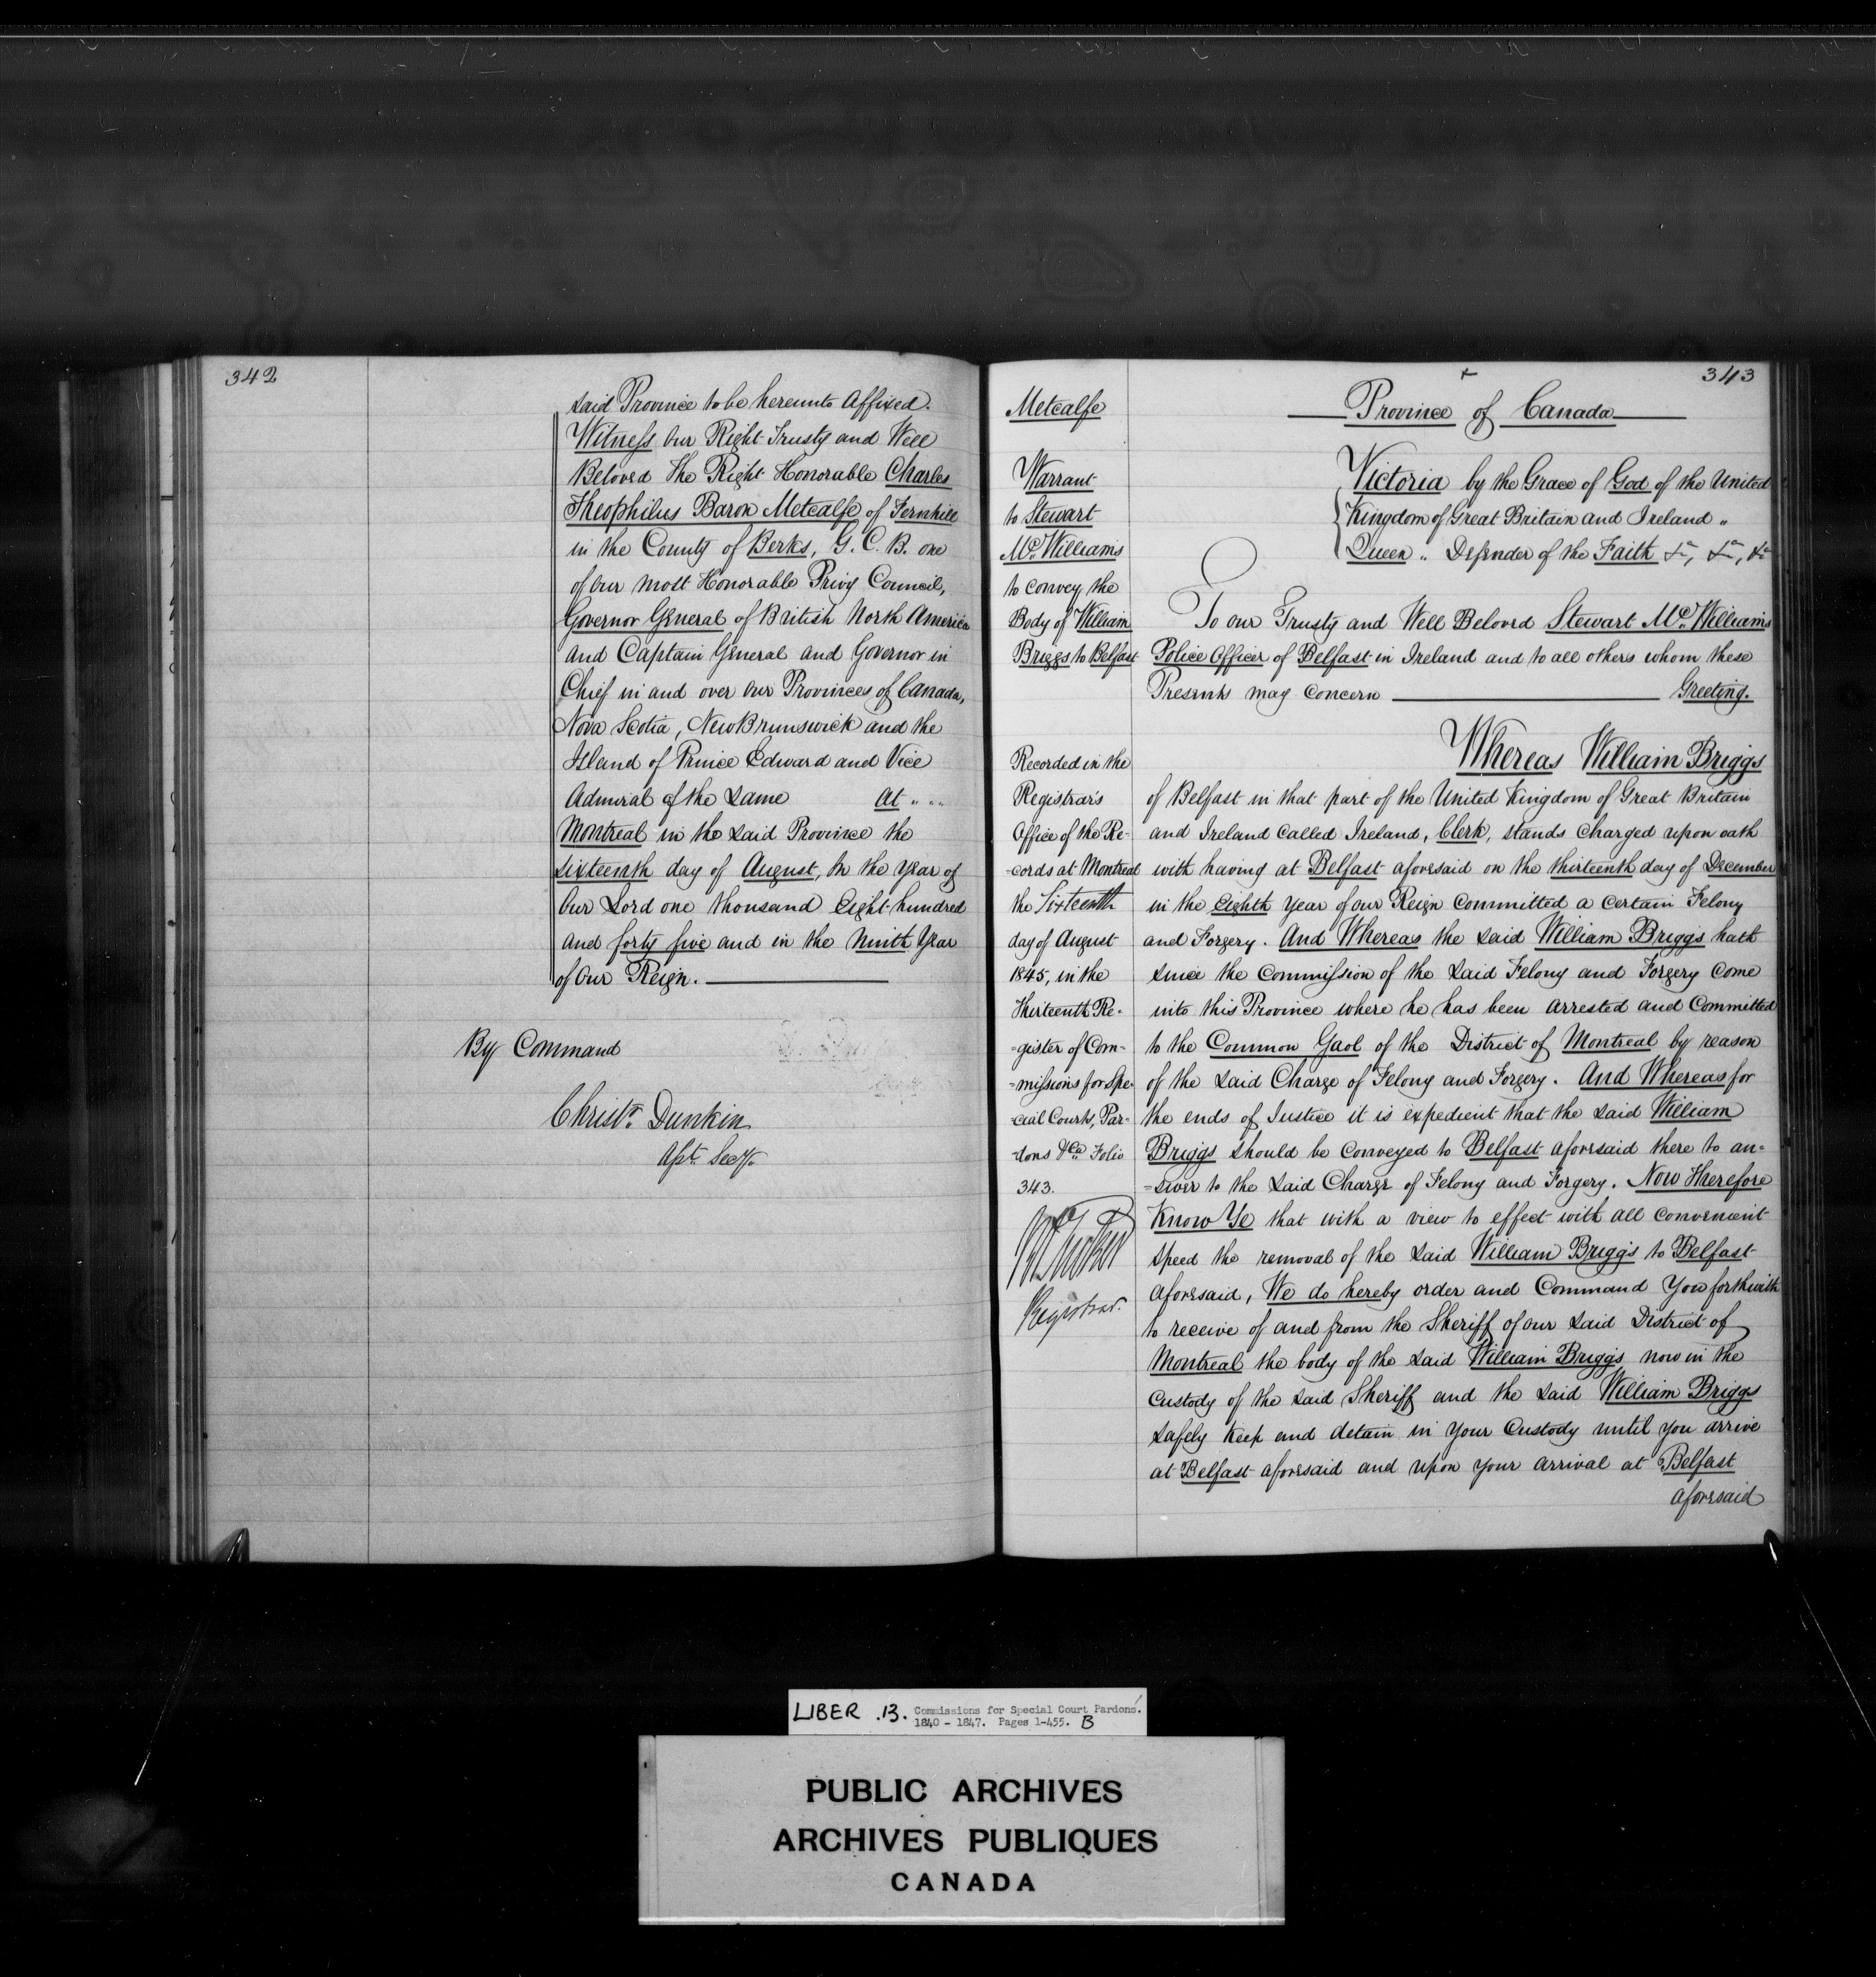 342
said Province to be hereunto Affixed.
Witness Our Right Trusty and Well
Beloved The Right Honorable Charles
Theophilus Baron Metcalfe of Fernhill
in the County of Berks, G. C. B. one
of Our most Honorable Privy Council,
Governor General of British North America
and Captain General and Governor in
Chief in and over our Provinces of Canada,
Nova Scotia, New Brunswick and the
Island of Prince Edward and Vice
Admiral of the Same At " " "
Montreal in the said Province the
sixteenth day of August, In the Year of
Our Lord one thousand Eight hundred
and forty five and in the Ninth Year
of Our Reign.
By Command
Christr. Dunkin
Asst. Secy.
343
Metcalfe
Warrant
to Stewart
Mc.Williams
to convey the
Body of William
Briggs to Belfast
Recorded in the
Registrar's
Office of the Re-
-cords at Montreal
the Sixteenth
day of August
1845, in the
Thirteenth Re-
-gister of Com-
-missions for Spe-
-cial Courts, Par-
-dons &ca Folio
343.
Registrar.
Province of Canada
Victoria by the Grace of God of the United
Kingdom of Great Britain and Ireland "
Queen " Defender of the Faith &c, &c, &c
To our Trusty and Well Beloved Stewart Mc.Williams
Police Officer of Belfast in Ireland and to all others whom these
Presents may Concern Greeting.
Whereas William Briggs
of Belfast in that part of the United Kingdom of Great Britain
and Ireland called Ireland, Clerk, stands Charged upon oath
with having at Belfast aforesaid on the thirteenth day of December
in the Eighth Year of our Reign Committed a Certain Felony
and Forgery. And Whereas the said William Briggs hath
since the Commission of the said Felony and Forgery Come
into this Province where he has been arrested and Committed
to the Common Gaol of the District of Montreal by reason
of the said Charge of Felony and Forgery. And Whereas for
the ends of Justice it is expedient that the said William
Briggs should be Conveyed to Belfast aforesaid there to an=
=swer to the said Charge of Felony and Forgery. Now Therefore
Know Ye that with a view to effect with all convenient
speed the removal of the said William Briggs to Belfast
aforesaid, We do hereby order and Command You forthwith
to receive of and from the Sheriff of our said District of
Montreal the body of the said William Briggs now in the
Custody of the said Sheriff and the said William Briggs
safely keep and detain in your Custody until you arrive
at Belfast aforesaid and upon your arrival at Belfast
aforesaid
LIBER .13. Commissions for Special Court Pardons.
1840 - 1847. Pages 1-455. B
PUBLIC ARCHIVES
ARCHIVES PUBLIQUES
CANADA